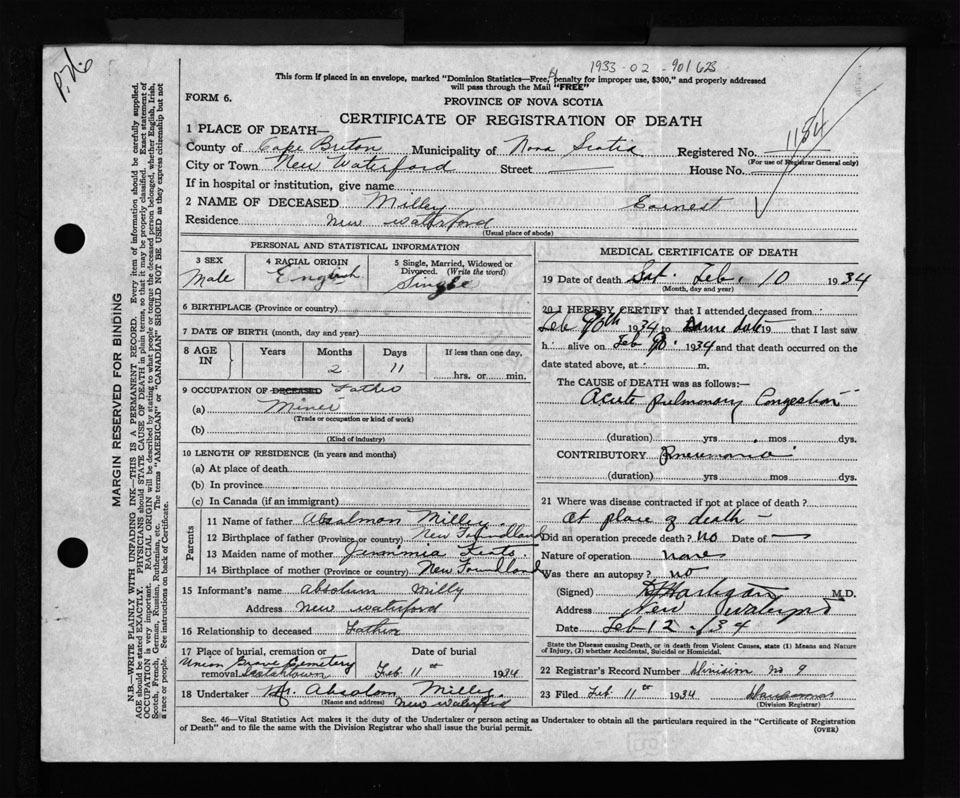 P. 76
1933-02-901623
This form if placed in an envelope, marked "Dominion Statistics—Free, penalty for improper use, $300," and properly addressed
will pass through the Mail "FREE"
FORM 6.
PROVINCE OF NOVA SCOTIA
CERTIFICATE OF REGISTRATION OF DEATH
1 PLACE OF DEATH—
County of Cape Breton Municipality of Nova Scotia Registered No. 1184
(For use of Registrar General only)
City or Town New Waterford Street House No.
If in hospital or institution, give name
2 NAME OF DECEASED Milley Earnest
Residence New Waterford
(Usual place of abode)
PERSONAL AND STATISTICAL INFORMATION
3 SEX Male
4 RACIAL ORIGIN English
5 Single, Married, Widowed or Divorced. (Write the word) Single
6 BIRTHPLACE (Province or country)
7 DATE OF BIRTH (month, day and year)
8 AGE IN Years Months 2 Days 11 If less than one day, hrs. or min.
9 OCCUPATION OF DECEASED Father
(a) Miner
(Trade or occupation or kind of work)
(b)
(Kind of industry)
10 LENGTH OF RESIDENCE (in years and months)
(a) At place of death
(b) In province
(c) In Canada (if an immigrant)
Parents
11 Name of father Absalmon Milley
12 Birthplace of father (Province or country) New Foundland
13 Maiden name of mother Jemimia
14 Birthplace of mother (Province or country) New Foundland
15 Informant's name Absolum Milly
Address New Waterford
16 Relationship to deceased Father
17 Place of burial, cremation or removal Union Grave Cemetery Scotchtown
Date of burial Feb 11th 1934
18 Undertaker Mr. Absolom Milley
(Name and address) New Waterford
MEDICAL CERTIFICATE OF DEATH
19 Date of death Sat. Feb. 10 1934
(Month, day and year)
20 I HEREBY CERTIFY that I attended deceased from
Feb 10th 1934 to same date 19 that I last saw
h alive on Feb 10. 1934 and that death occurred on the
date stated above, at m.
The CAUSE OF DEATH was as follows:—
Acute Pulmonary Congestion
(duration) yrs mos dys.
CONTRIBUTORY Pneumonia
(duration) yrs mos dys.
21 Where was disease contracted if not at place of death?
At place of death —
Did an operation precede death? No Date of —
Nature of operation none
Was there an autopsy? no
(Signed) Hartigan M.D.
Address New Waterford
Date Feb 12 /34
State the Disease causing Death, or in death from Violent Causes, state (1) Means and Nature of Injury, (2) whether Accidental, Suicidal or Homicidal.
22 Registrar's Record Number Division No 9
23 Filed Feb 11th 1934
(Division Registrar)
Sec. 46—Vital Statistics Act makes it the duty of the Undertaker or person acting as Undertaker to obtain all the particulars required in the "Certificate of Registration
of Death" and to file the same with the Division Registrar who shall issue the burial permit.
(OVER)
MARGIN RESERVED FOR BINDING
N.B.—WRITE PLAINLY WITH UNFADING INK—THIS IS A PERMANENT RECORD. Every item of information should be carefully supplied.
AGE should be stated EXACTLY. PHYSICIANS should STATE CAUSE OF DEATH in plain terms, so that it may be properly classified. Exact statement of
OCCUPATION is very important. RACIAL ORIGIN will be described by stating to what people or tongue the deceased person belonged, whether English, Irish,
Scotch, French, German, Russian, Ruthenian, etc. The terms "AMERICAN" or "CANADIAN" SHOULD NOT BE USED as they express citizenship but not
a race or people. See instructions on back of Certificate.